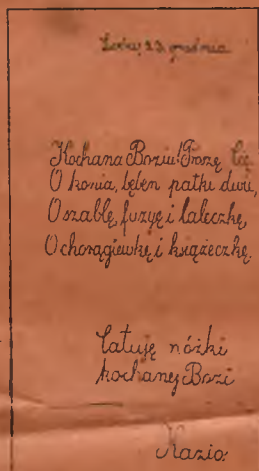 23 grudnia
Kochana Boziu! Proszę Cię
O konia, bęben pałki dwie,
O szablę, fuzyę i laleczkę,
O chorągiewkę i książeczkę.
Całuję nóżki
kochanej Bozi
Kazio.